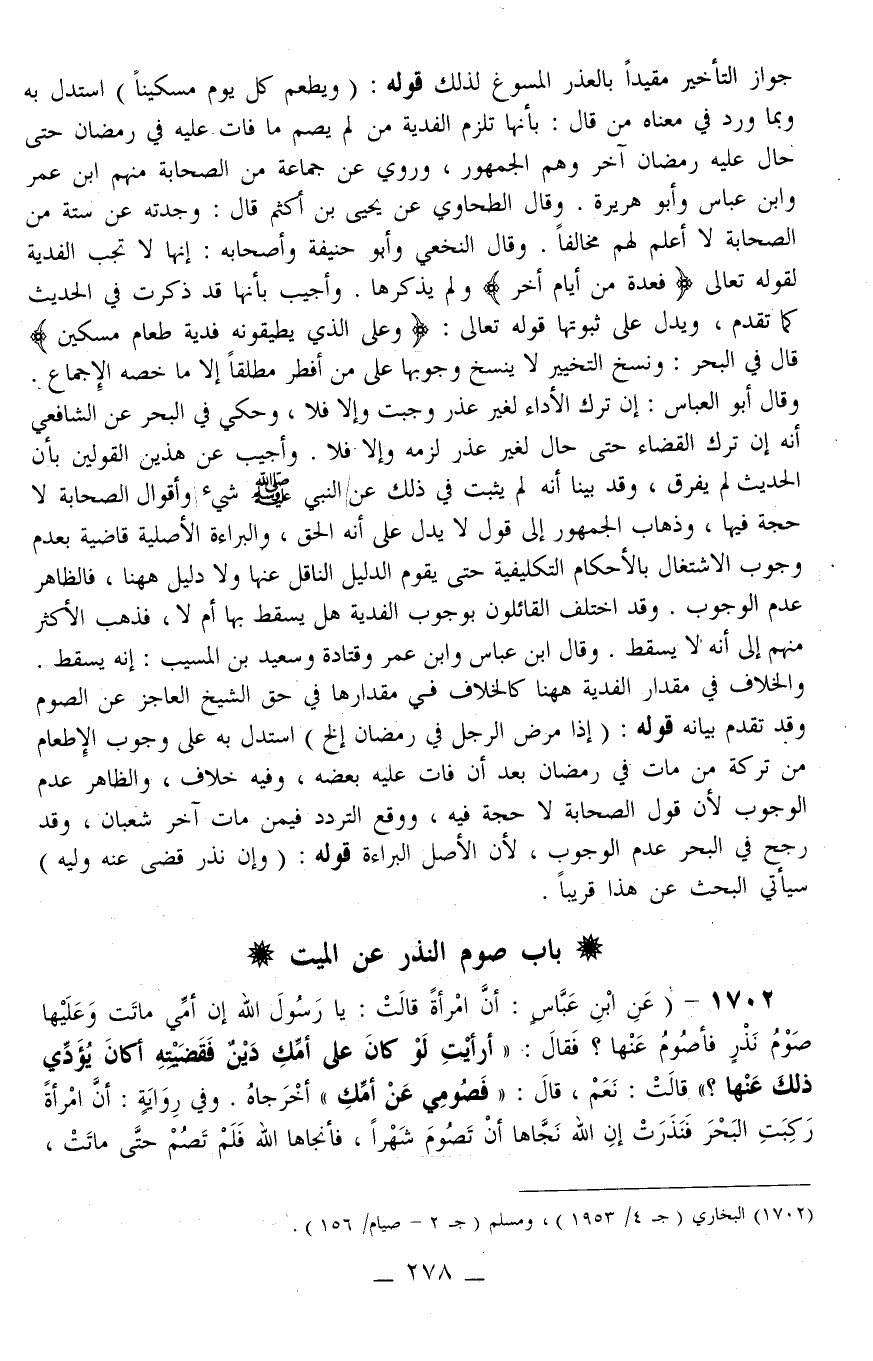 جواز التأخير مقيداً بالعذر المسوغ لذلك قوله : ( ويطعم كل يوم مسكيناً ) استدل به
وبما ورد في معناه من قال : بأنها تلزم الفدية من لم يصم ما فات عليه في رمضان حتى
حال عليه رمضان آخر وهم الجمهور ، وروي عن جماعة من الصحابة منهم ابن عمر
وابن عباس وأبو هريرة . وقال الطحاوي عن يحيى بن أكثم قال : وجدته عن ستة من
الصحابة لا أعلم لهم مخالفاً . وقال النخعي وأبو حنيفة وأصحابه : إنها لا تجب الفدية
لقوله تعالى ﴿ فعدة من أيام أخر ﴾ ولم يذكرها . وأجيب بأنها قد ذكرت في الحديث
كما تقدم ، ويدل على ثبوتها قوله تعالى : ﴿ وعلى الذي يطيقونه فدية طعام مسكين ﴾
قال في البحر : ونسخ التخيير لا ينسخ وجوبها على من أفطر مطلقاً إلا ما خصه الإجماع .
وقال أبو العباس : إن ترك الأداء لغير عذر وجبت وإلا فلا ، وحكي في البحر عن الشافعي
أنه إن ترك القضاء حتى حال لغير عذر لزمه وإلا فلا . وأجيب عن هذين القولين بأن
الحديث لم يفرق ، وقد بينا أنه لم يثبت في ذلك عن النبي ﷺ شيء وأقوال الصحابة لا
حجة فيها ، وذهاب الجمهور إلى قول لا يدل على أنه الحق ، والبراءة الأصلية قاضية بعدم
وجوب الاشتغال بالأحكام التكليفية حتى يقوم الدليل الناقل عنها ولا دليل ههنا ، فالظاهر
عدم الوجوب . وقد اختلف القائلون بوجوب الفدية هل يسقط بها أم لا ، فذهب الأكثر
منهم إلى أنه لا يسقط . وقال ابن عباس وابن عمر وقتادة وسعيد بن المسيب : إنه يسقط .
والخلاف في مقدار الفدية ههنا كالخلاف في مقدارها في حق الشيخ العاجز عن الصوم
وقد تقدم بيانه قوله : ( إذا مرض الرجل في رمضان إلخ ) استدل به على وجوب الإطعام
من تركة من مات في رمضان بعد أن فات عليه بعضه ، وفيه خلاف ، والظاهر عدم
الوجوب لأن قول الصحابة لا حجة فيه ، ووقع التردد فيمن مات آخر شعبان ، وقد
رجح في البحر عدم الوجوب ، لأن الأصل البراءة قوله : ( وإن نذر قضى عنه وليه )
سيأتي البحث عن هذا قريباً .
باب صوم النذر عن الميت
١٧٠٢ – ( عَنِ ابْنِ عَبَّاسٍ : أنَّ امْرأةً قالَتْ : يا رَسُولَ الله إن أمِّي ماتَت وَعَلَيْها
صَوْمُ نَذْرٍ فأصُومُ عَنْها ؟ فَقالَ : « أرأيْتِ لَوْ كانَ على أمِّكِ دَيْنٌ فَقَضَيْتِهِ أكانَ يُؤَدِّي
ذلكَ عَنْها ؟» قالَتْ : نَعَمْ ، قالَ : « فَصُومِي عَنْ أمِّكِ » أخْرَجاهُ . وفي رِوَايَةٍ : أنَّ امْرأةً
رَكِبَتِ البَحْرَ فَنَذَرَتْ إنِ الله نَجَّاها أنْ تَصُومَ شَهْراً ، فأنجاها الله فَلَمْ تَصُمْ حتَّى ماتَتْ ،
(١٧٠٢) البخاري ( جـ ٤/ ١٩٥٣ ) ، ومسلم ( جـ ٢ – صيام/ ١٥٦ ) .
– ٢٧٨ –